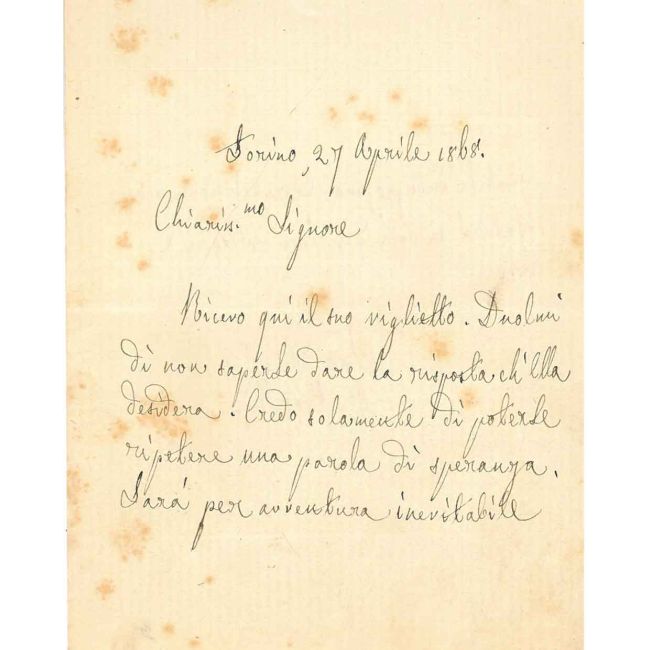 Torino, 27 Aprile 1868.
Chiaris.mo Signore
Ricevo qui il suo viglietto. Duolmi
di non saperle dare la risposta ch'Ella
desidera. Credo solamente di poterle
ripetere una parola di speranza.
Sarà per avventura inevitabile